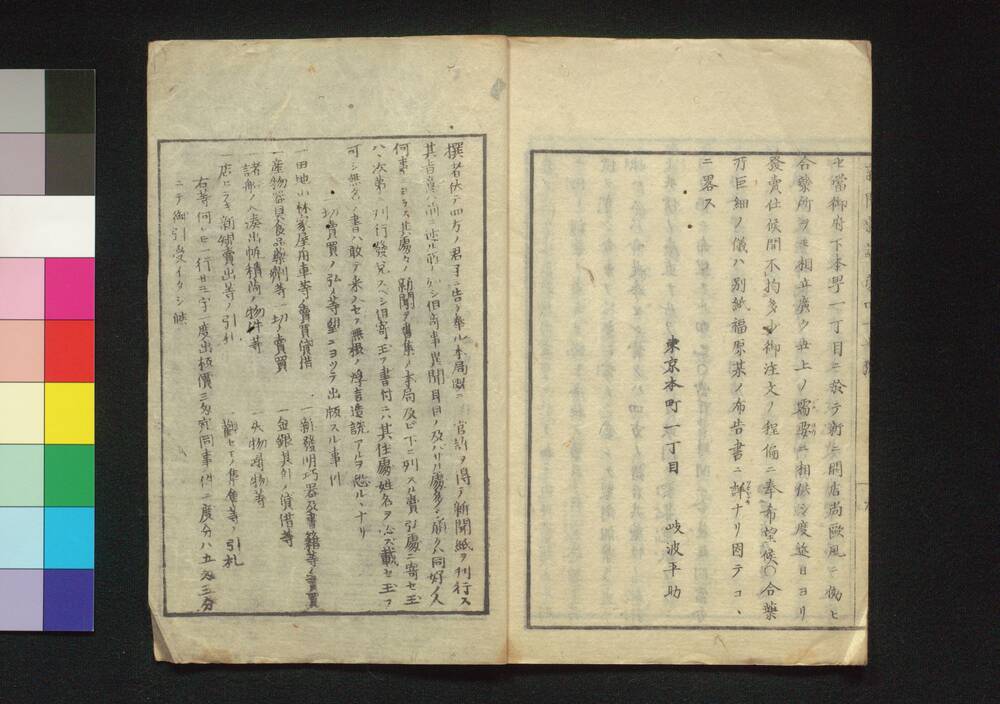 セ當御府下本界一丁目ニ於テ新ニ開店尚歐風ニ傚ヒ
合藥所ヲモ相立廣ク世上ノ需要ニ相供シ度近日ヨリ
發賣仕候間不拘多少御注文ノ程偏ニ奉希望候〇合藥
方巨細ノ儀ハ別紙福原某ノ布告書ニ詳ナリ因テコヽ
ニ畧ス
東京本町一丁目 岐波平助
撰者伏テ四方ノ君子ニ告ケ奉ル本局既ニ官許ヲ得テ新聞紙ヲ刊行ス
其旨意前ニ述ル所ノ如シ但奇事異聞耳目ノ及バザル處多シ願クハ同好ノ人
何事ニヨラス其處々ノ新聞ヲ書集メ本局及ビ下ニ列スル賣弘處ニ寄セ玉
ハヽ次第ニ刊行發兌スベシ但寄玉フ書付ニハ其住處姓名ヲ必ズ載セ玉フ
可シ無名ノ書ハ敢テ来ノセス無根ノ浮言造説アルヲ恐ルヽナリ
一切賣買ノ弘メ等望ニヨツテ出版スル事
一田地山林家屋舟車等ノ賣買貸借
一新發明巧器及書籍等ノ賣買
一産物器具食品藥劑等一切ノ賣買
一金銀其外ノ貸借等
一諸船ノ入湊出帆積荷ノ物件等
一失物落物等
一店ニテ新規賣出等ノ引札
一觀セモノ集會等ノ引札
右等何レモ一行廿三字一度出板價三匁宛同事ノ件二度分ハ五匁三分
ニテ御引受イタシ候